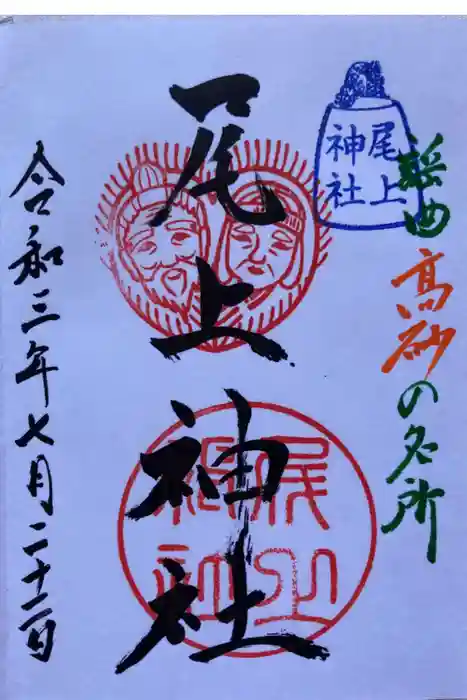 謡曲高砂の名所
尾上
神社
尾上神社
尾上
神社
令和三年七月二十二日